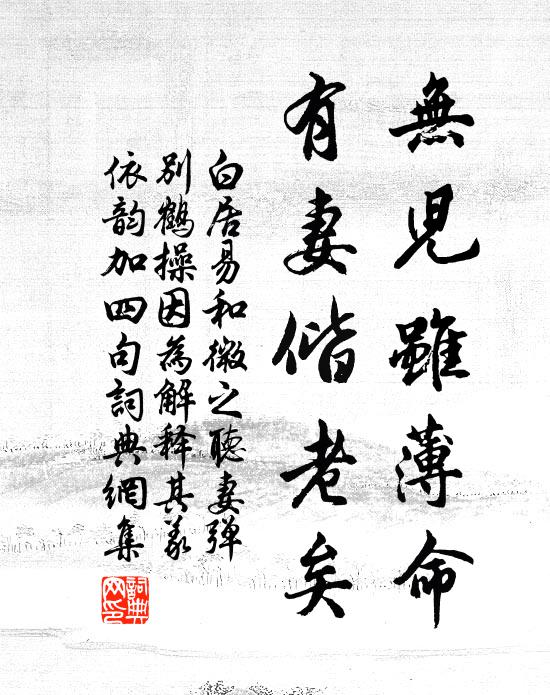 無兒雖薄命
有妻偕老矣
白居易和微之聽妻彈
別鶴操因為解釋其義
依韵加四句詞典網集
詞典
网印